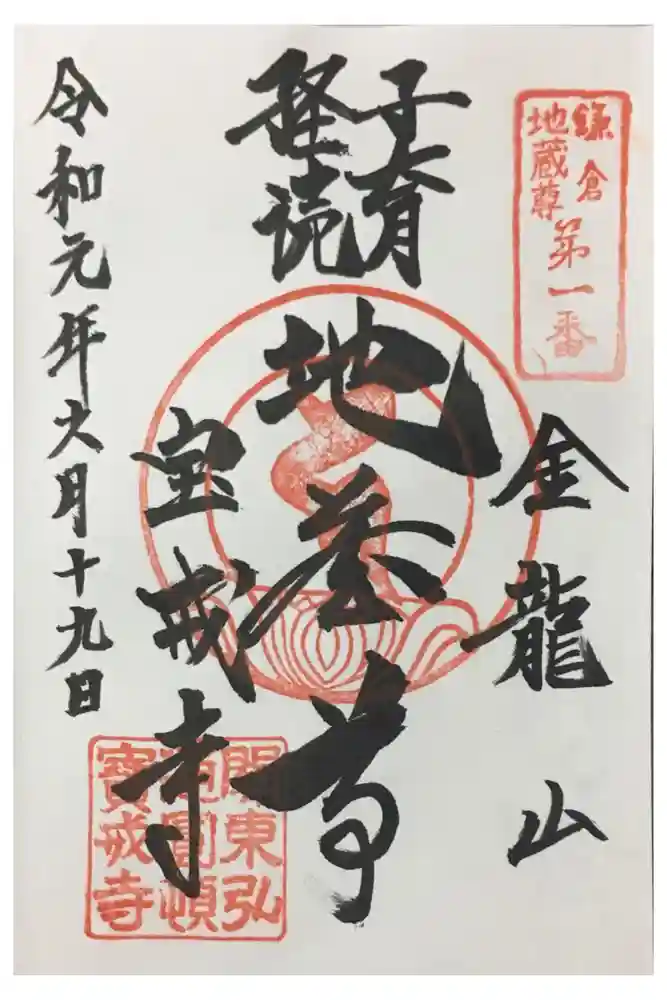 鎌倉
地蔵尊
第一番
金龍山
子育
経読
地蔵尊
宝戒寺
東弘
圓頓
寶戒寺
令和元年六月十九日